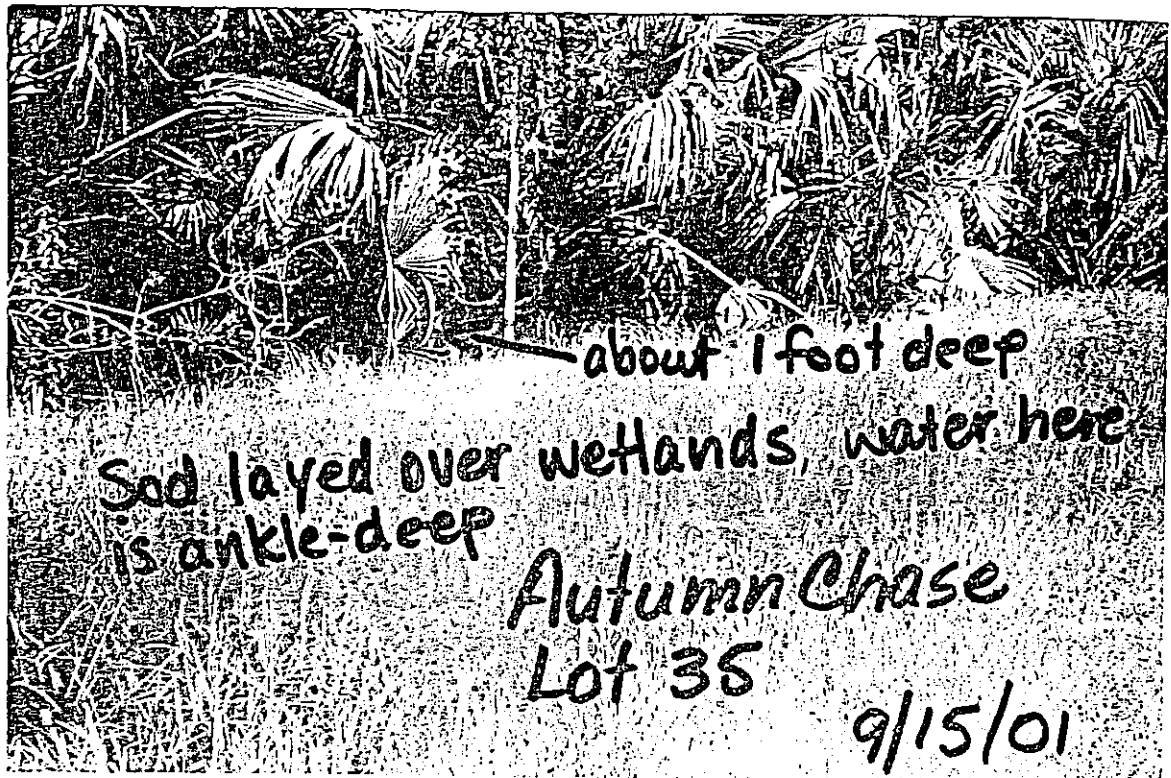 about 1 foot deep
Sod layed over wetlands, water here
is ankle-deep
Autumn Chase
Lot 35
9/15/01